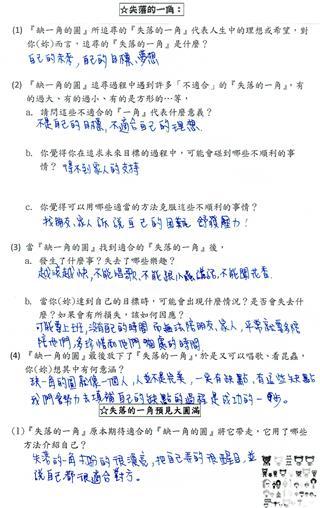 ☆失落的一角：
(1) 『缺一角的圓』所追尋的『失落的一角』代表人生中的理想或希望，對
你(妳)而言，追尋的『失落的一角』是什麼？
自己的未來，自己的目標、夢想
(2) 『缺一角的圓』追尋過程中遇到許多「不適合」的『失落的一角』，有
的過大、有的過小、有的是方形的…等，
a. 請問這些不適合的『一角』代表什麼意義？
不是自己的目標，不適合自己的理想.
b. 你覺得你在追求未來目標的過程中，可能會碰到哪些不順利的事
情？ 得不到家人的支持
c. 你覺得可以用哪些適當的方法克服這些不順利的事情？
找朋友、家人訴說自己的困難 舒發壓力！
(3) 當『缺一角的圓』找到適合的『失落的一角』後，
a. 發生了什麼事？失去了哪些樂趣？
越滾越快，不能唱歌，不能跟小蟲講話，不能聞花香.
b. 當你(妳)達到自己的目標時，可能會出現什麼情況？是否會失去什
麼？如果會有所損失，該如何因應？
可能要上班，沒自己的時間 而無法陪朋友、家人，平常就要多多
陪他們，多珍惜和他們相處的時間
(4) 『缺一角的圓』最後放下了『失落的一角』，於是又可以唱歌、看昆蟲，
你(妳)想其中有何意涵？
缺一角的圓就像一個人，人並不是完美，一定有缺點，有這些缺點
我們會努力去填補自己的缺點的過程是成功的一步。
☆失落的一角預見大圓滿
(1) 『失落的一角』原本期待適合的『缺一角的圓』將它帶走，它用了哪些
方法介紹自己？
失落的一角
說自己都很適合對方。